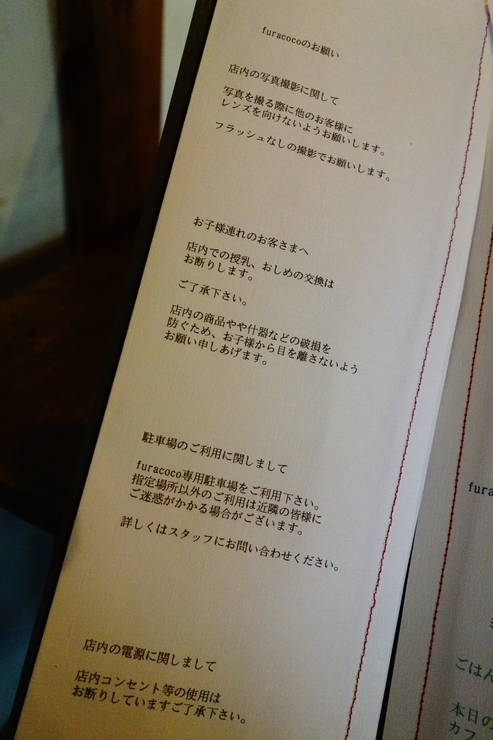 furacocoのお願い
店内の写真撮影に関して
写真を撮る際に他のお客様に
レンズを向けないようお願いします。
フラッシュなしの撮影でお願いします。
お子様連れのお客さまへ
店内での授乳、おしめの交換は
お断りします。
ご了承下さい。
店内の商品やや什器などの破損を
防ぐため、お子様から目を離さないよう
お願い申しあげます。
駐車場のご利用に関しまして
furacoco専用駐車場をご利用下さい。
指定場所以外のご利用は近隣の皆様に
ご迷惑がかかる場合がございます。
詳しくはスタッフにお問い合わせください。
店内の電源に関しまして
店内コンセント等の使用は
お断りしていますご了承下さい。
fura
ごはん
本日の
カフ